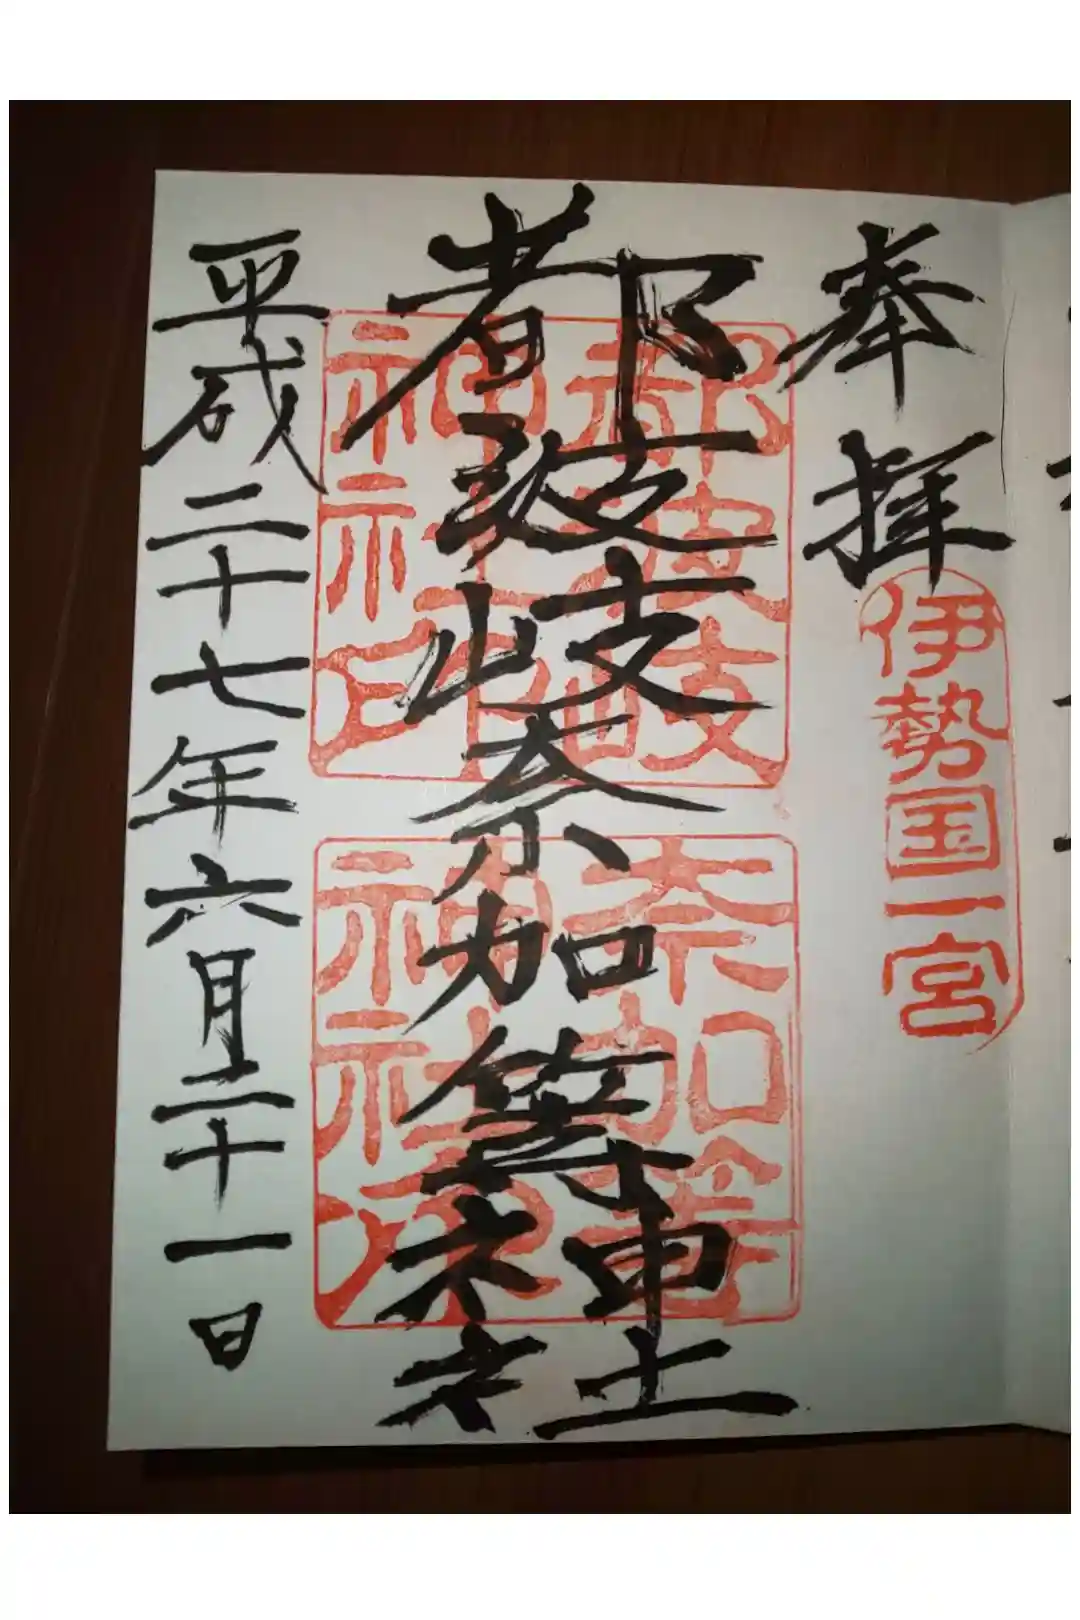 奉拝
伊勢国一宮
都波岐奈加等神社
都波岐
神社印
奈加等
神社
平成二十七年六月二十一日